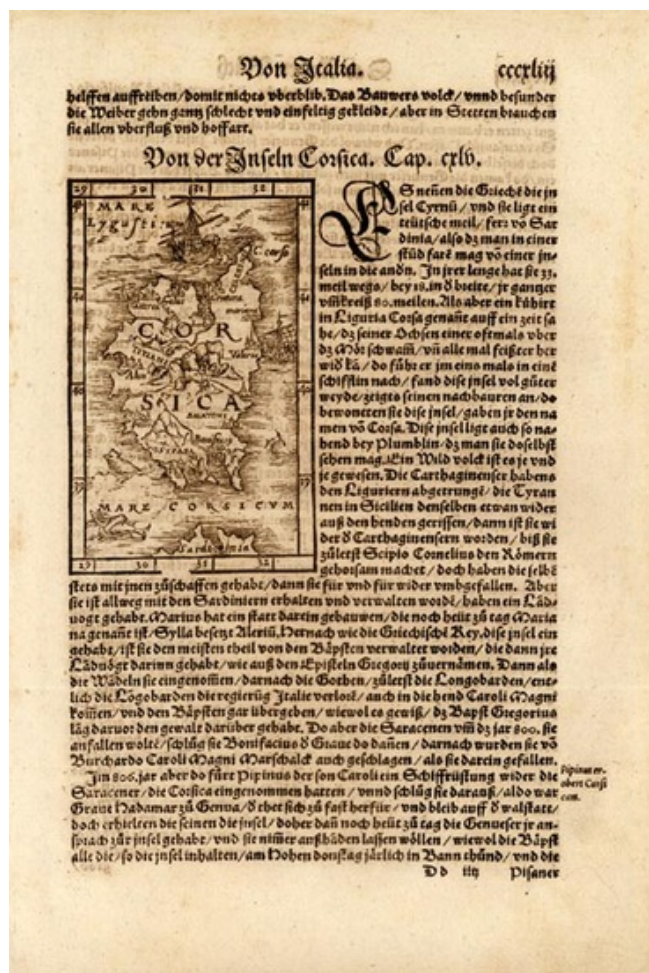 Von Italia.
cccxliij
helffen auffreiben/domit nichts vberblib. Das Bauwers volck/vnnd besunder
die Weiber gehn gantz schlecht vnd einfeltig gekleidt/aber in Stetten brauchen
sie allen vberfluß vnd hoffart.
Von der Inseln Corsica. Cap. cxlv.
29 30 31 32
MARE
Lygusti
C. corso
COR
SICA
MARE CORSICVM
Sardinia
30 31 32
ES neñen die Griechẽ die jn
sel Cyrnũ/vnd sie ligt ein
teütsche meil/ferr võ Sar
dinia/also dz man in einer
stũd farẽ mag võ einer jn-
seln in die andñ. In jrer lenge hat sie 33.
meil wegs/bey 18. in d breite/jr gantzer
vm̃kreiß 80. meilen. Als aber ein kühirt
in Liguria Corsa genañt auff ein zeit sa
he/dz seiner Ochsen einer oftmals vber
dz Mör schwam̃/vñ alle mal feißter her
wid kã/do führ er jm eins mals in einẽ
schifflin nach/fand dise jnsel vol gůter
weyde/zeigts seinen nachbauren an/do
bewoneten sie dise jnsel/gaben jr den na
men võ Corsa. Dise jnsel ligt auch so na-
hend bey Plumblin/dz man sie doselbst
sehen mag. Ein Wild volck ist es je vnd
je gewesen. Die Carthaginenser habens
den Liguriern abgetrungẽ/die Tyran
nen in Sicilien denselben etwan wider
auß den henden gerissen/dann ist sie wi
der d Carthaginensern worden/biß sie
zůletst Scipio Cornelius den Römern
gehorsam machet/doch haben die selbẽ
stets mit jnen zůschaffen gehabt/dann sie für vnd für wider vmbgefallen. Aber
sie ist allweg mit den Sardiniern erhalten vnd verwalten wordẽ/haben ein Lãd-
vogt gehabt. Marius hat ein statt darein gebauwen/die noch heüt zů tag Maria
na genañt ist/Sylla besetzt Aleriũ. Hernach wie die Griechischẽ Key. dise jnsel ein
gehabt/ist sie den meisten theil von den Bäpsten verwaltet worden/die dann jre
Lãdvögt darinn gehabt/wie auß den Episteln Gregorij zůuernämen. Dann als
die Wãdeln sie eingenom̃en/darnach die Gothen/zůletst die Longobarden/ent-
lich die Lõgobarden die regierũg Italie verlorẽ/auch in die hend Caroli Magni
kom̃en/vnd den Bäpsten gar übergeben/wiewol es gewiß/dz Bapst Gregorius
lãg daruor den gewalt darüber gehabt. Do aber die Saracenen vm̃ dz jar 800. sie
anfallen woltẽ/schlůg sie Bonifacius d Graue do dañen/darnach wurden sie võ
Burchardo Caroli Magni Marschalck auch geschlagen/als sie darein gefallen.
Im 806. jar aber do fůrt Pipinus der son Caroli ein Schiffrüstung wider die
Saracener/die Corsica eingenommen hatten/vnnd schlůg sie darauß/aldo war
Graue Hadamar zů Genua/d thet sich zů fast herfür/vnd bleib auff d walstatt/
doch erhielten die seinen die jnsel/doher dañ noch heüt zů tag die Genueser jr an-
sprach zůr jnsel gehabt/vnd sie nim̃er außhäden lassen wöllen/wiewol die Bäpst
alle die/so die jnsel inhalten/am Hohen donstag järlich in Bann thůnd/vnd die
Pipinus er-
obert Corsi
cam.
Dd iiij Pisaner